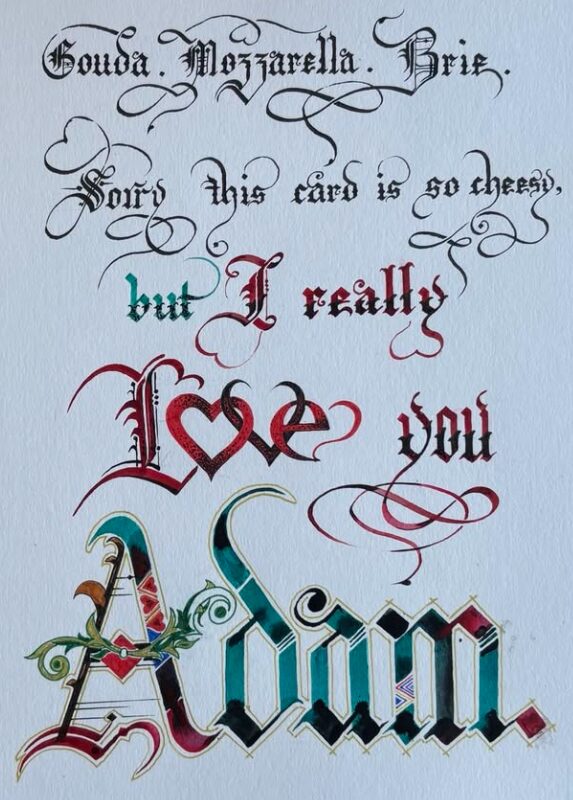 Gouda. Mozzarella. Brie.
Sorry this card is so cheesy,
but I really
Love you
Adam.